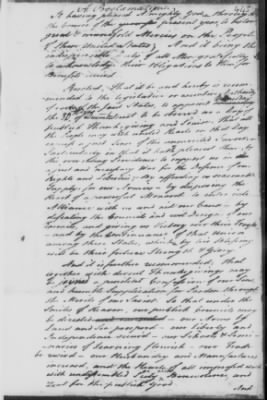 A Proclamation
It having pleased Almighty God, through
the Course of the present year, to be
great & manifold Mercies on the People
of these United States; And it being the
indispensible Duty of all Men gratefully
to acknowledge their Obligations to Him for
Benefits received
Resolved, That it be and hereby is recom-
mended to the legislative or executive Authority
of each of these States, to appoint
the of December to be observed as a Day of
publick Thanksgiving and Praise; that all
the People may with united Hearts on that Day
express a just Sense of his unmerited Favours;
Particularly in that it hath pleased him, by
his over ruling Providence to support us in a
just and necessary War for the Defence of our
Rights and Liberties; By affording us seasonable
Supplies for our Armies - by disposing the
Heart of a powerful Monarch to enter into
Alliance with us and aid our Cause - by
defeating the Councils and evil Designs of our
Enemies, and giving us Victory over their Troops
- and by the Continuance of that Union
among these States, which by his Blessing
will be their future Strength & Glory.
And it is further recommended, that
together with devout Thanksgivings may
be joyned a penitent Confession of our Sins
and humble Supplication for Pardon through
the Merits of our Saviour. So that under the
Smiles of Heaven, our publick Councils may
be directed - our Arms by
Land and Sea prospered - our Liberty and
Independence secured - our Schools & Semi-
naries of Learning flourish - our Trade
be revived - our Husbandry and Manufactures
increased, and the Hearts of all impressed with
with undissembled Piety, with Benevolence, and
Zeal for the publick Good.
And